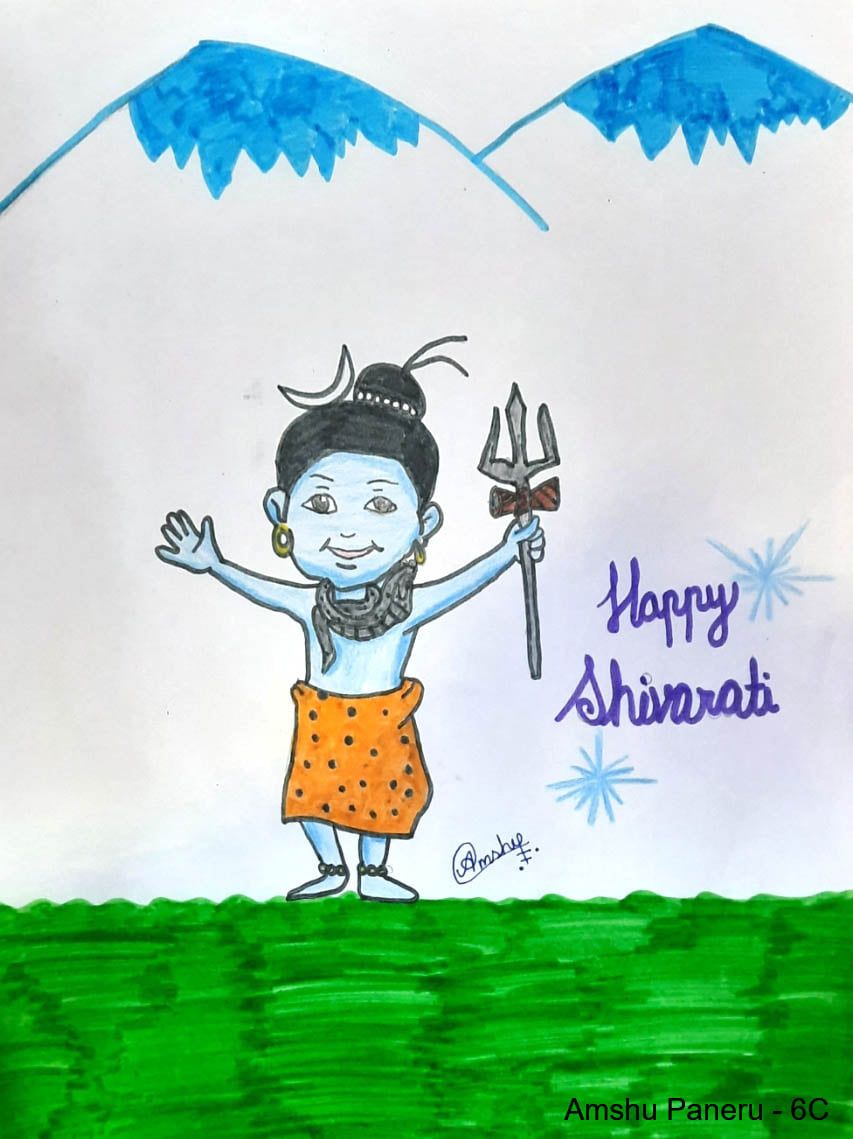 Happy
Shivarati
Amshu
Amshu Paneru - 6C